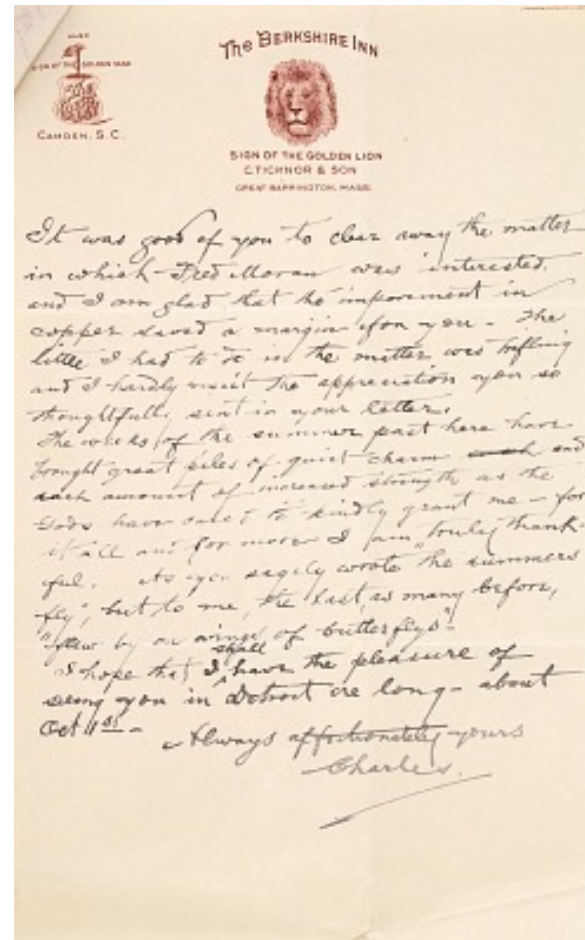 ALSO
SIGN OF THE GOLDEN VASE
CAMDEN, S.C.
The BERKSHIRE INN
SIGN OF THE GOLDEN LION
C.TICKNOR & SON
GREAT BARRINGTON, MASS.
It was good of you to clear away the matter
in which Fred Moran was interested
and I am glad that the imporement in
copper saved a margin for you - The
little I had to do in the matter was trifling
and I hardly merit the appreciation you so
thoughtfully sent in your letter.
The weeks of the summer past here have
brought great piles of quiet charm and
such amount of increased strength as the
Gods have to kindly grant me - for
it all and for more I am truly thank-
ful. As you sagely wrote "the summers
fly", but to me, the last, as many before,
"flew by on wings of butterflys"
I hope that I shall have the pleasure of
seeing you in Detroit ere long - about
Oct 11st -
Always affectionately yours
Charles.